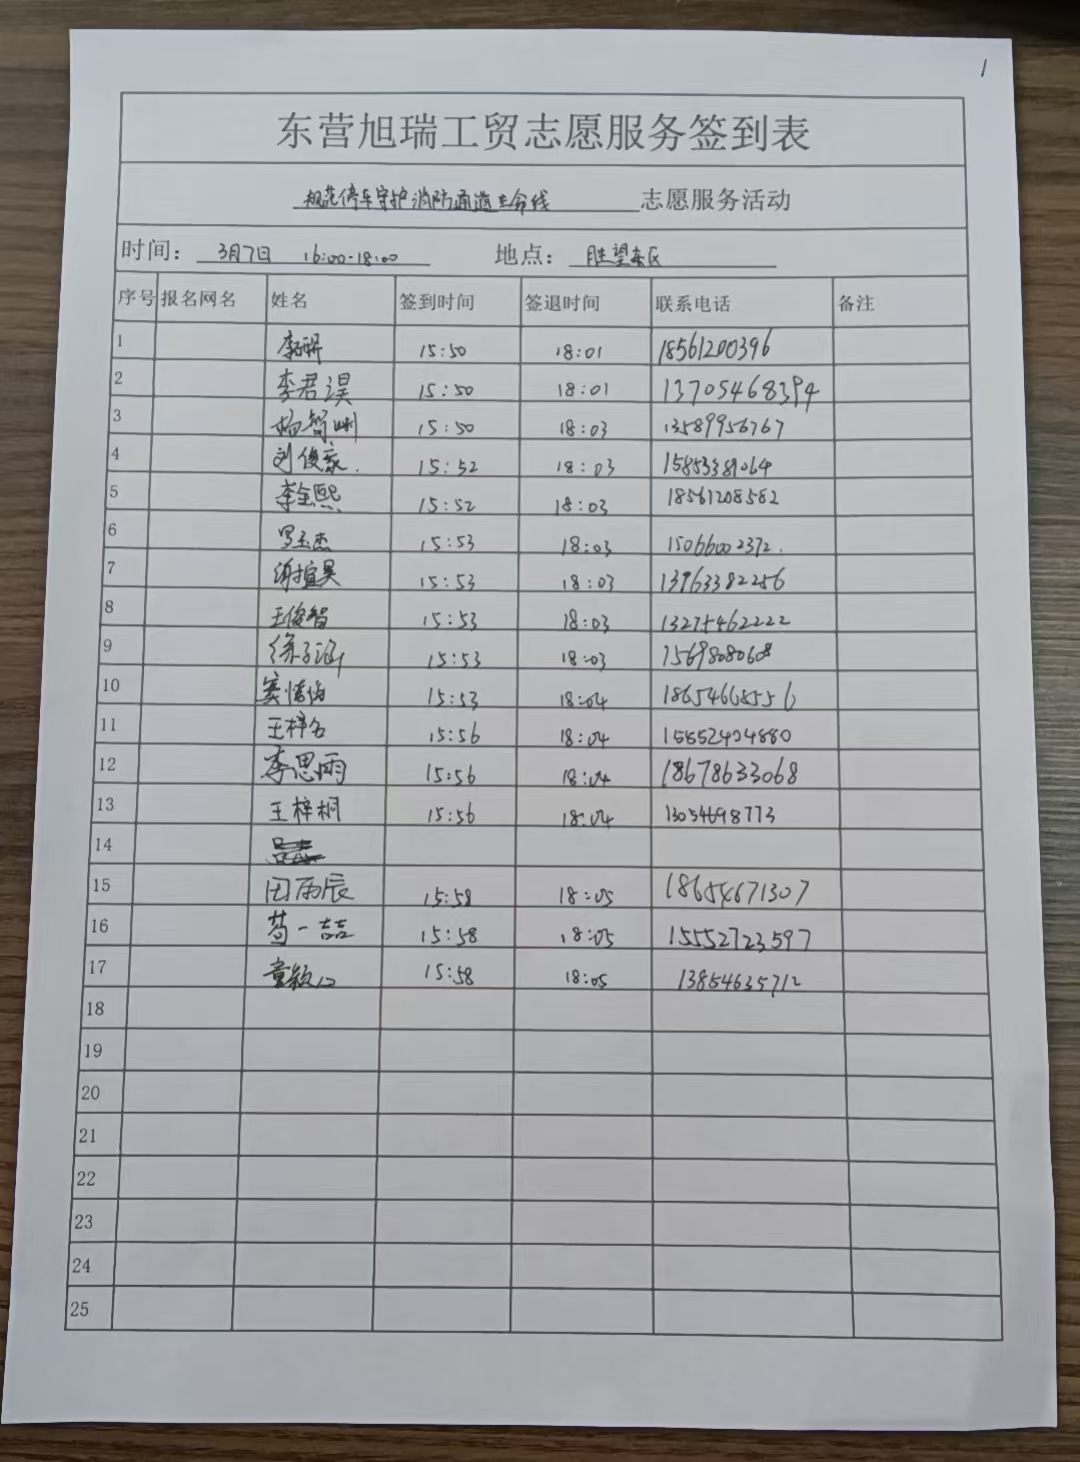 1
东营旭瑞工贸志愿服务签到表
规范停车守护消防通道生命线 志愿服务活动
时间： 3月7日 16:00-18:00 地点： 胜望东区
序号 报名网名 姓名 签到时间 签退时间 联系电话 备注
1 15:50 18:01 18561200396
2 李君漠 15:50 18:01 13705468394
3 杨智渊 15:50 18:03 13589956767
4 刘俊豪 15:52 18:03 15853381064
5 李金熙 15:52 18:03 18561208582
6 罗玉杰 15:53 18:03 15066002372
7 谢煊昊 15:53 18:03 13963382256
8 王俊智 15:53 18:03 13275462222
9 徐子涵 15:53 18:03 15698080608
10 15:53 18:04 18654668556
11 王梓名 15:56 18:04 15552404880
12 李思雨 15:56 18:04 18678633068
13 王梓桐 15:56 18:04 13054698773
14
15 田雨辰 15:58 18:05 18654671307
16 苟一喆 15:58 18:05 15552723597
17 15:58 18:05 13854635712
18
19
20
21
22
23
24
25